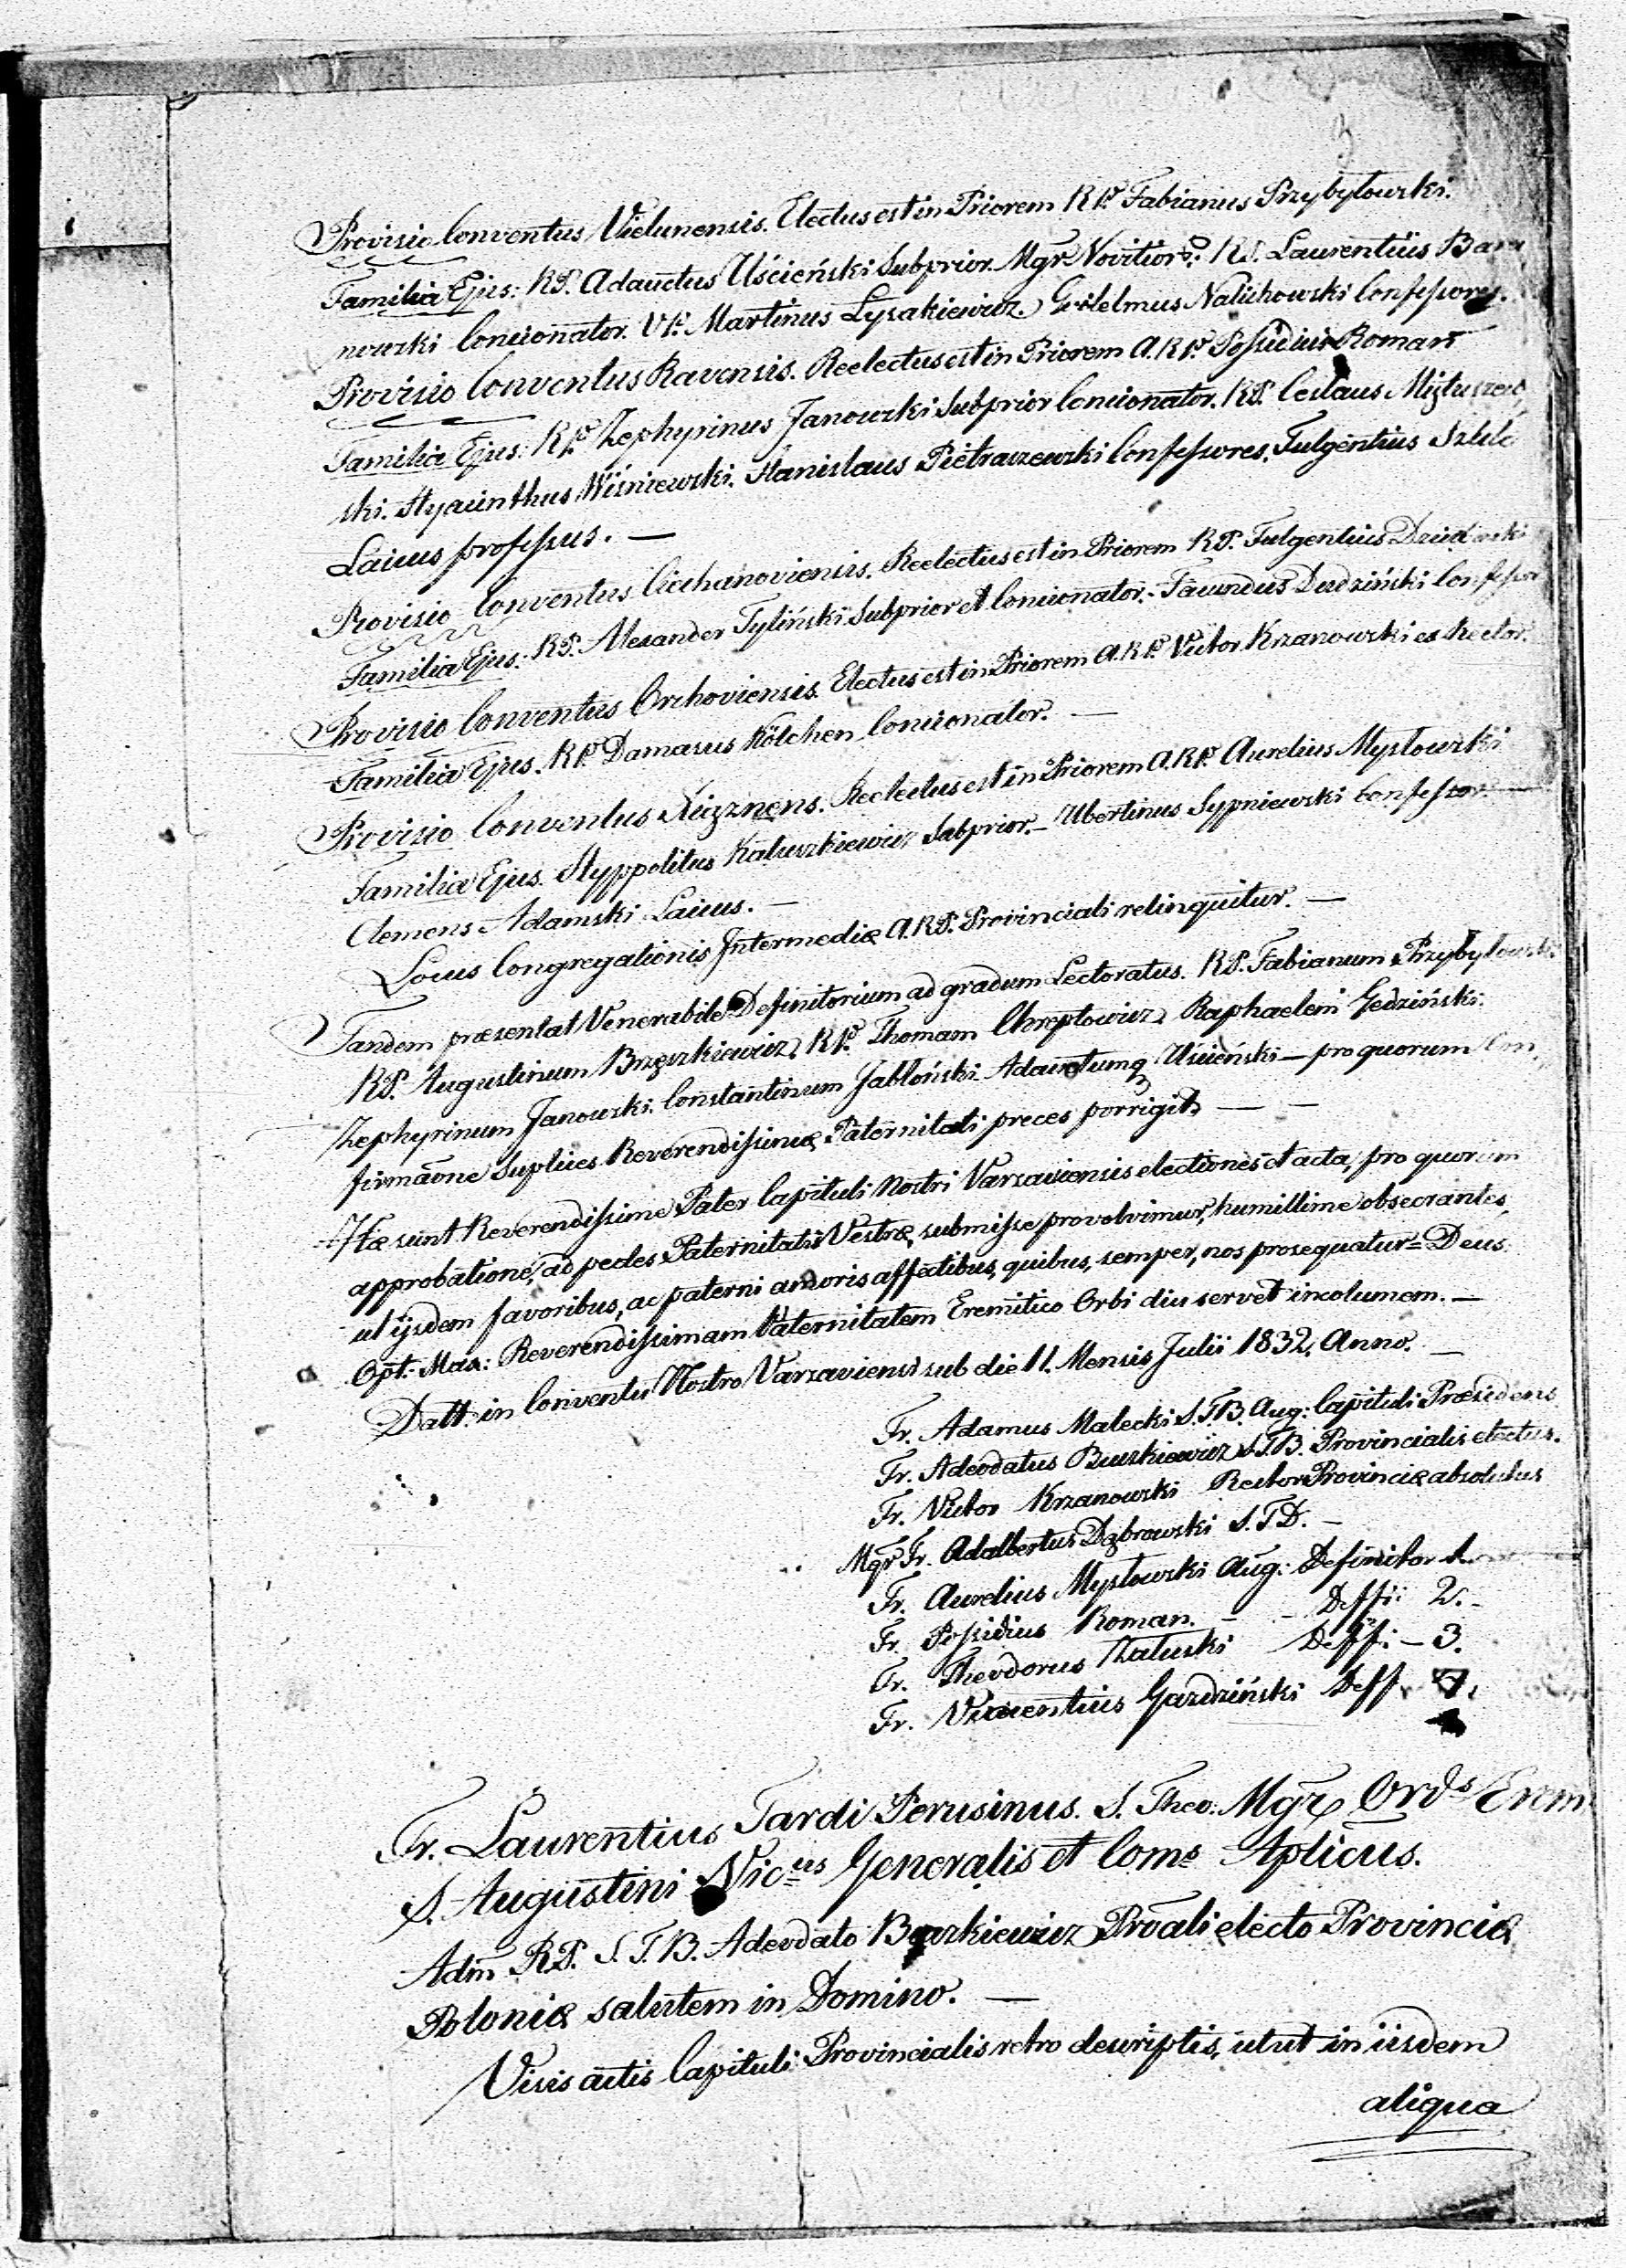 Provisio Conventus Vielunensis. Electus est in Priorem R P. Fabianus Przybyłowski.
Familia Ejus: RP. Adauctus Uścieński Subprior. Mgr Novitior. RP. Laurentius Bara
nowski Concionator. VP. Martinus Łysakiewicz. Gvilelmus Nalichowski Confessores.
Provisio Conventus Ravensis. Reelectus est in Priorem A. R P. Possidius Roman
Familia Ejus: R P. Zephyrinus Janowski Subprior Concionator. RP. Ceslaus
ski. Hyacinthus Wiśniewski. Stanislaus Pietraszewski Confessores. Fulgentius
Laicus professus. —
Provisio Conventus Ciechanoviensis. Reelectus est in Priorem RP. Fulgentius
Familia Ejus: RP. Alexander Tyliński Subprior et Concionator. - Facundus Dudziński Confessor
Provisio Conventus Orchoviensis. Electus est in Priorem A. R P. Victor Krzanowski ex Rector.
Familia Ejus. R P. Damasus Kölchen Concionator. —
Provisio Conventus Xiąznens. Reelectus est in Priorem A. R P. Aurelius Mysłowski
Familia Ejus. Hyppolitus Kałuszkiewicz Subprior. - Ubertinus Sypniewski Confessor.
Clemens Adamski Laicus. —
Locus Congregationis Intermediæ A. RP. Provinciali relinquitur. —
Tandem præsentat Venerabile Definitorium ad gradum Lectoratus. RP. Fabianum Przybyłowski
RP. Augustinum Brzęszkiewicz, R P. Thomam Chreptowicz, Raphaelem Gedziński:
Zephyrinum Janowski. Constantinum Jabłoński Adauctumq Uścieński — pro quorum Con
firmaōne Suplices Reverendissimæ Paternitati preces porrigit. — —
Hæ sunt Reverendissime Pater Capituli Nostri Varsaviensis electiones et acta, pro quorum
approbatione, ad pedes Paternitatis Vestræ, submisse provolvimur, humillime obsecrantes,
ut ijsdem favoribus, ac paterni amoris affectibus, quibus, semper, nos prosequatur = Deus
Opt: Max: Reverendissimam Paternitatem Eremitico Orbi diu servet incolumem. —
Datt: in Conventu Nostro Varsaviensi sub die 11. Mensis Julii 1832. Anno. —
Fr. Adamus Malecki S.T.B. Aug: Capituli Præsidens
Fr. Adeodatus Buszkiewicz S.T.B. Provincialis electus.
Fr. Victor Krzanowski Rector Provinciæ absolutus
Mgr Fr. Adalbertus Dąbrowski S.T.D. —
Fr. Aurelius Mysłowski Aug: Definitor 1.
Fr. Possidius Roman. - - Deffi: 2. -
Fr. Theodorus Załuski Deff: - 3.
Fr. Vincentius Gazdziński Deff. 4.
Fr. Laurentius Tardi Perusinus. S. Theo: Mgr, Ord.s Erem.
S. Augustini Vic.us Generalis et Com.s Aplicus.
Adm̄ RP. S.T.B. Adeodato Buszkiewicz Proāli electo Provinciæ
Poloniæ salutem in Domino. —
Visis actis Capituli Provincialis retro descriptis, utut in iisdem
aliqua